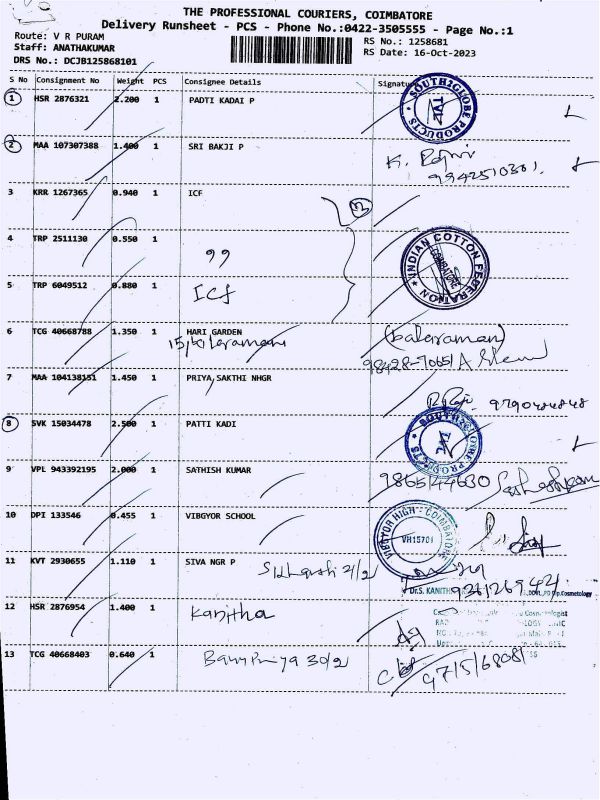 THE PROFESSIONAL COURIERS, COIMBATORE
Delivery Runsheet - PCS - Phone No.:0422-3505555 - Page No.:1
Route: V R PURAM
Staff: ANATHAKUMAR
DRS No.: DCJB125868101
RS No.: 1258681
RS Date: 16-Oct-2023
S No Consignment No Weight PCS Consignee Details Signature
1 HSR 2876321 2.200 1 PADTI KADAI P
SOUTH2GLOBE PRODUCTS TVL
2 MAA 107307388 1.400 1 SRI BAKJI P
K. 9942510301.
3 KRR 1267365 0.940 1 ICF
3
4 TRP 2511130 0.550 1 99
INDIAN COTTON FEDERATION COIMBATORE
5 TRP 6049512 0.880 1 ICF
6 TCG 40668788 1.350 1 HARI GARDEN
(balaraman)
7 MAA 104138151 1.450 1 PRIYA SAKTHI NHGR
9790484848
8 SVK 15034478 2.500 1 PATTI KADI
SOUTH2GLOBE PRODUCTS TVL
9 VPL 943392195 2.000 1 SATHISH KUMAR
9865144630
10 DPI 133546 0.455 1 VIBGYOR SCHOOL
VIBGYOR HIGH - COIMBATORE VH15701
11 KVT 2930655 1.110 1 SIVA NGR P
Dr.S. KANITHA
12 HSR 2876954 1.400 1 Kanitha
13 TCG 40668403 0.640 1 30/2